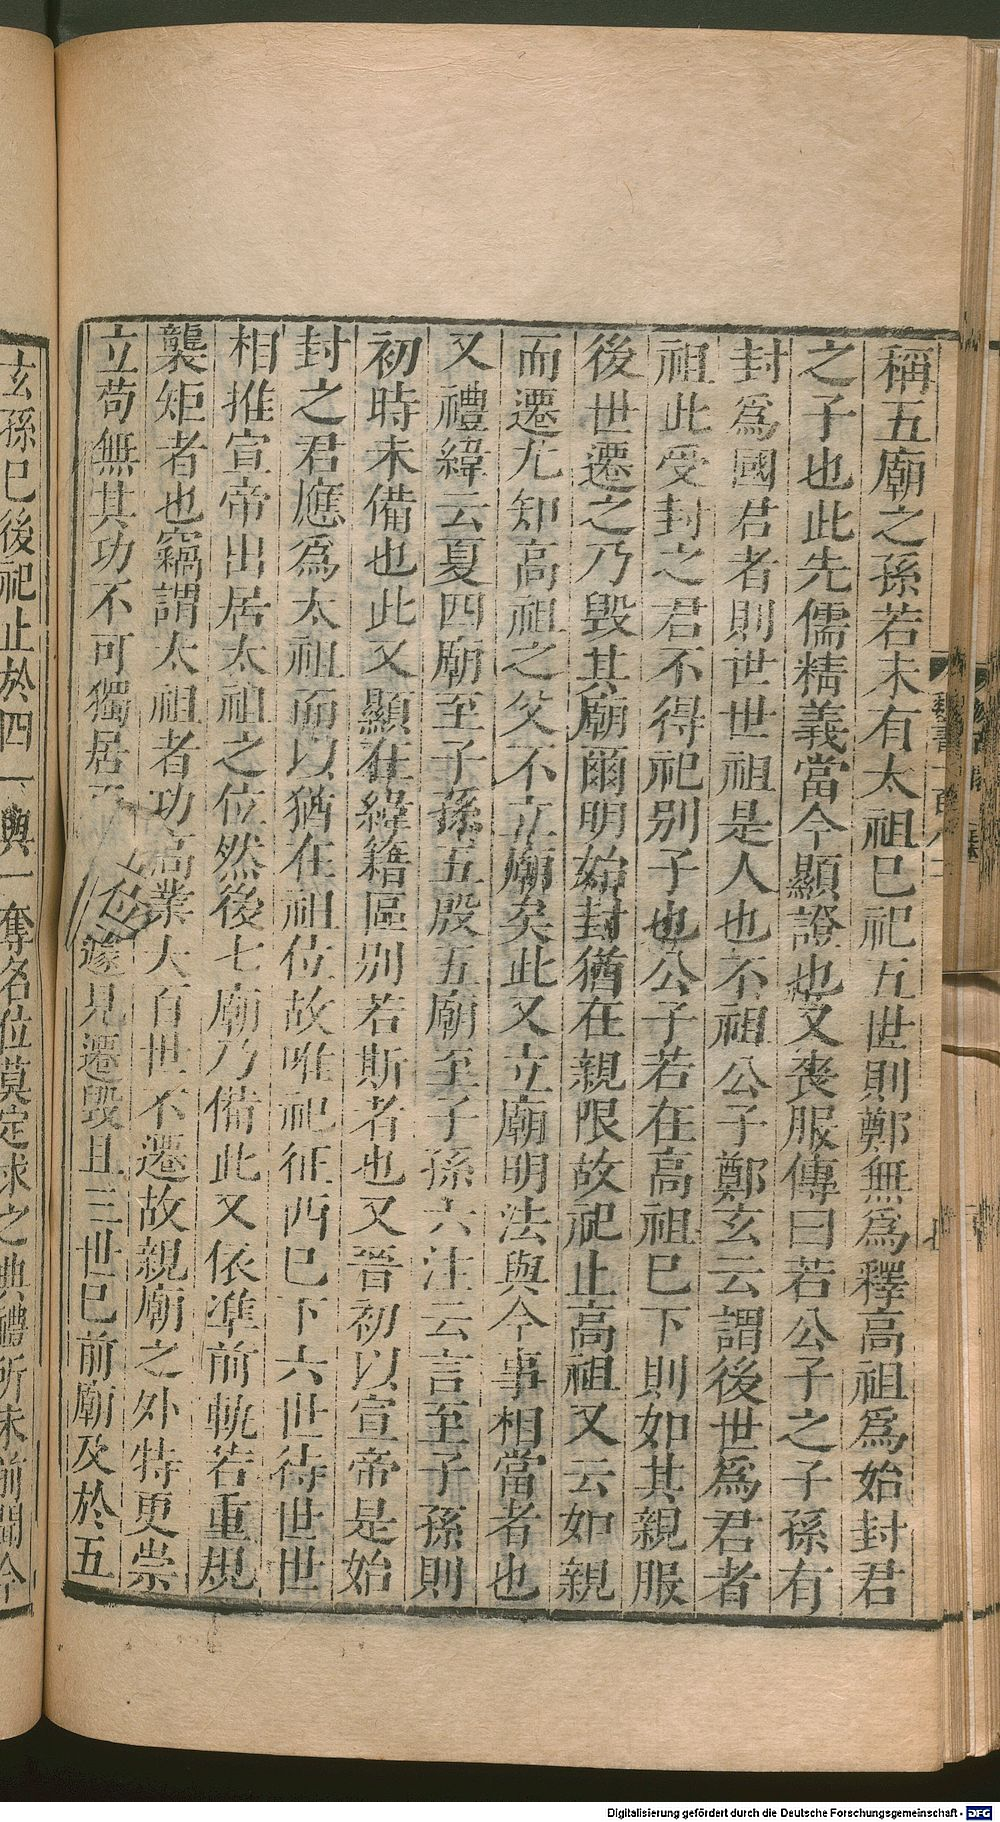 稱五廟之孫若未有太祖已祀五世則鄭無爲釋高祖爲始封君
之子也此先儒精義當今顯證也又喪服傳曰若公子之子孫有
封爲國君者則世世祖是人也不祖公子鄭玄云謂後世爲君者
祖此受封之君不得祀别子也公子若在高祖已下則如其親服
後世遷之乃毀其廟爾明始封猶在親限故祀止高祖又云如親
而遷尤知高祖之父不立廟矣此又立廟明法與今事相當者也
又禮緯云夏四廟至子孫五殷五廟至子孫六注云言至子孫則
初時未備也此又顯在緯籍區别若斯者也又晉初以宣帝是始
封之君應爲太祖而以猶在祖位故唯祀征西已下六世待世世
相推宣帝出居太祖之位然後七廟乃備此又依準前軌若重規
襲矩者也竊謂太祖者功高業大百世不遷故親廟之外特更崇
立苟無其功不可獨居位遽見遷毀且三世已前廟及於五
玄孫已後祀止於四一與一奪名位莫定求之典禮所未前聞今
Digitalisierung gefördert durch die Deutsche Forschungsgemeinschaft - DFG